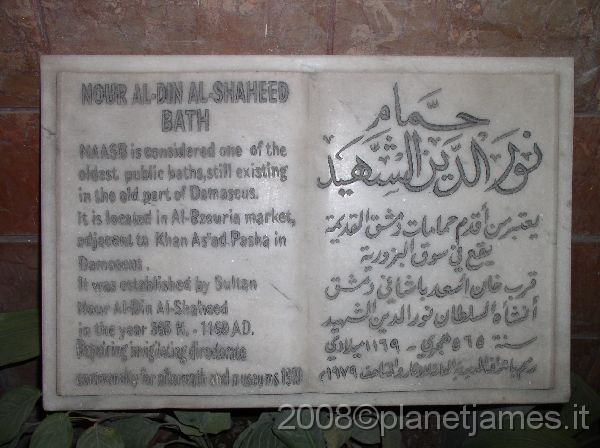 NOUR AL-DIN AL-SHAHEED
BATH
NAASB is considered one of the
oldest public baths, still existing
in the old part of Damascus.
It is located in Al-Bzouria market,
adjacent to Khan As'ad Pasha in
Damascus.
It was established by Sultan
Nour Al-Din Al-Shaheed
in the year 565 H. - 1169 AD.
directorate
museums
حمام
نور الدين الشهيد
يعتبر من أقدم حمامات دمشق القديمة
يقع في سوق البزورية
قرب خان أسعد باشا في دمشق
أنشأه السلطان نور الدين الشهيد
سنة ٥٦٥ هجري - ١١٦٩ ميلادي
١٩٧٩م
2008©planetjames.it